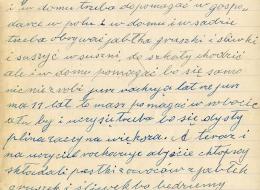 i w domu trzeba dopomagać w gospo
darce w polu i w domu i w sadzie
trzeba obrywać jabłka gruszki i śliwki
i suszyć w suszni, do szkoły chodzić
ale i w domu pomagać bo się samo
nic nie zrobi jun lat ne jun
ma 11 lat to masz pomagać w robocie
a tu by i trzeba bo się dysty
plina racy na większa. A teraz i
na uczyciel obyście chłopcy
składali pestki z owoców z jabłek
gruszek i śliwek bo będziemy